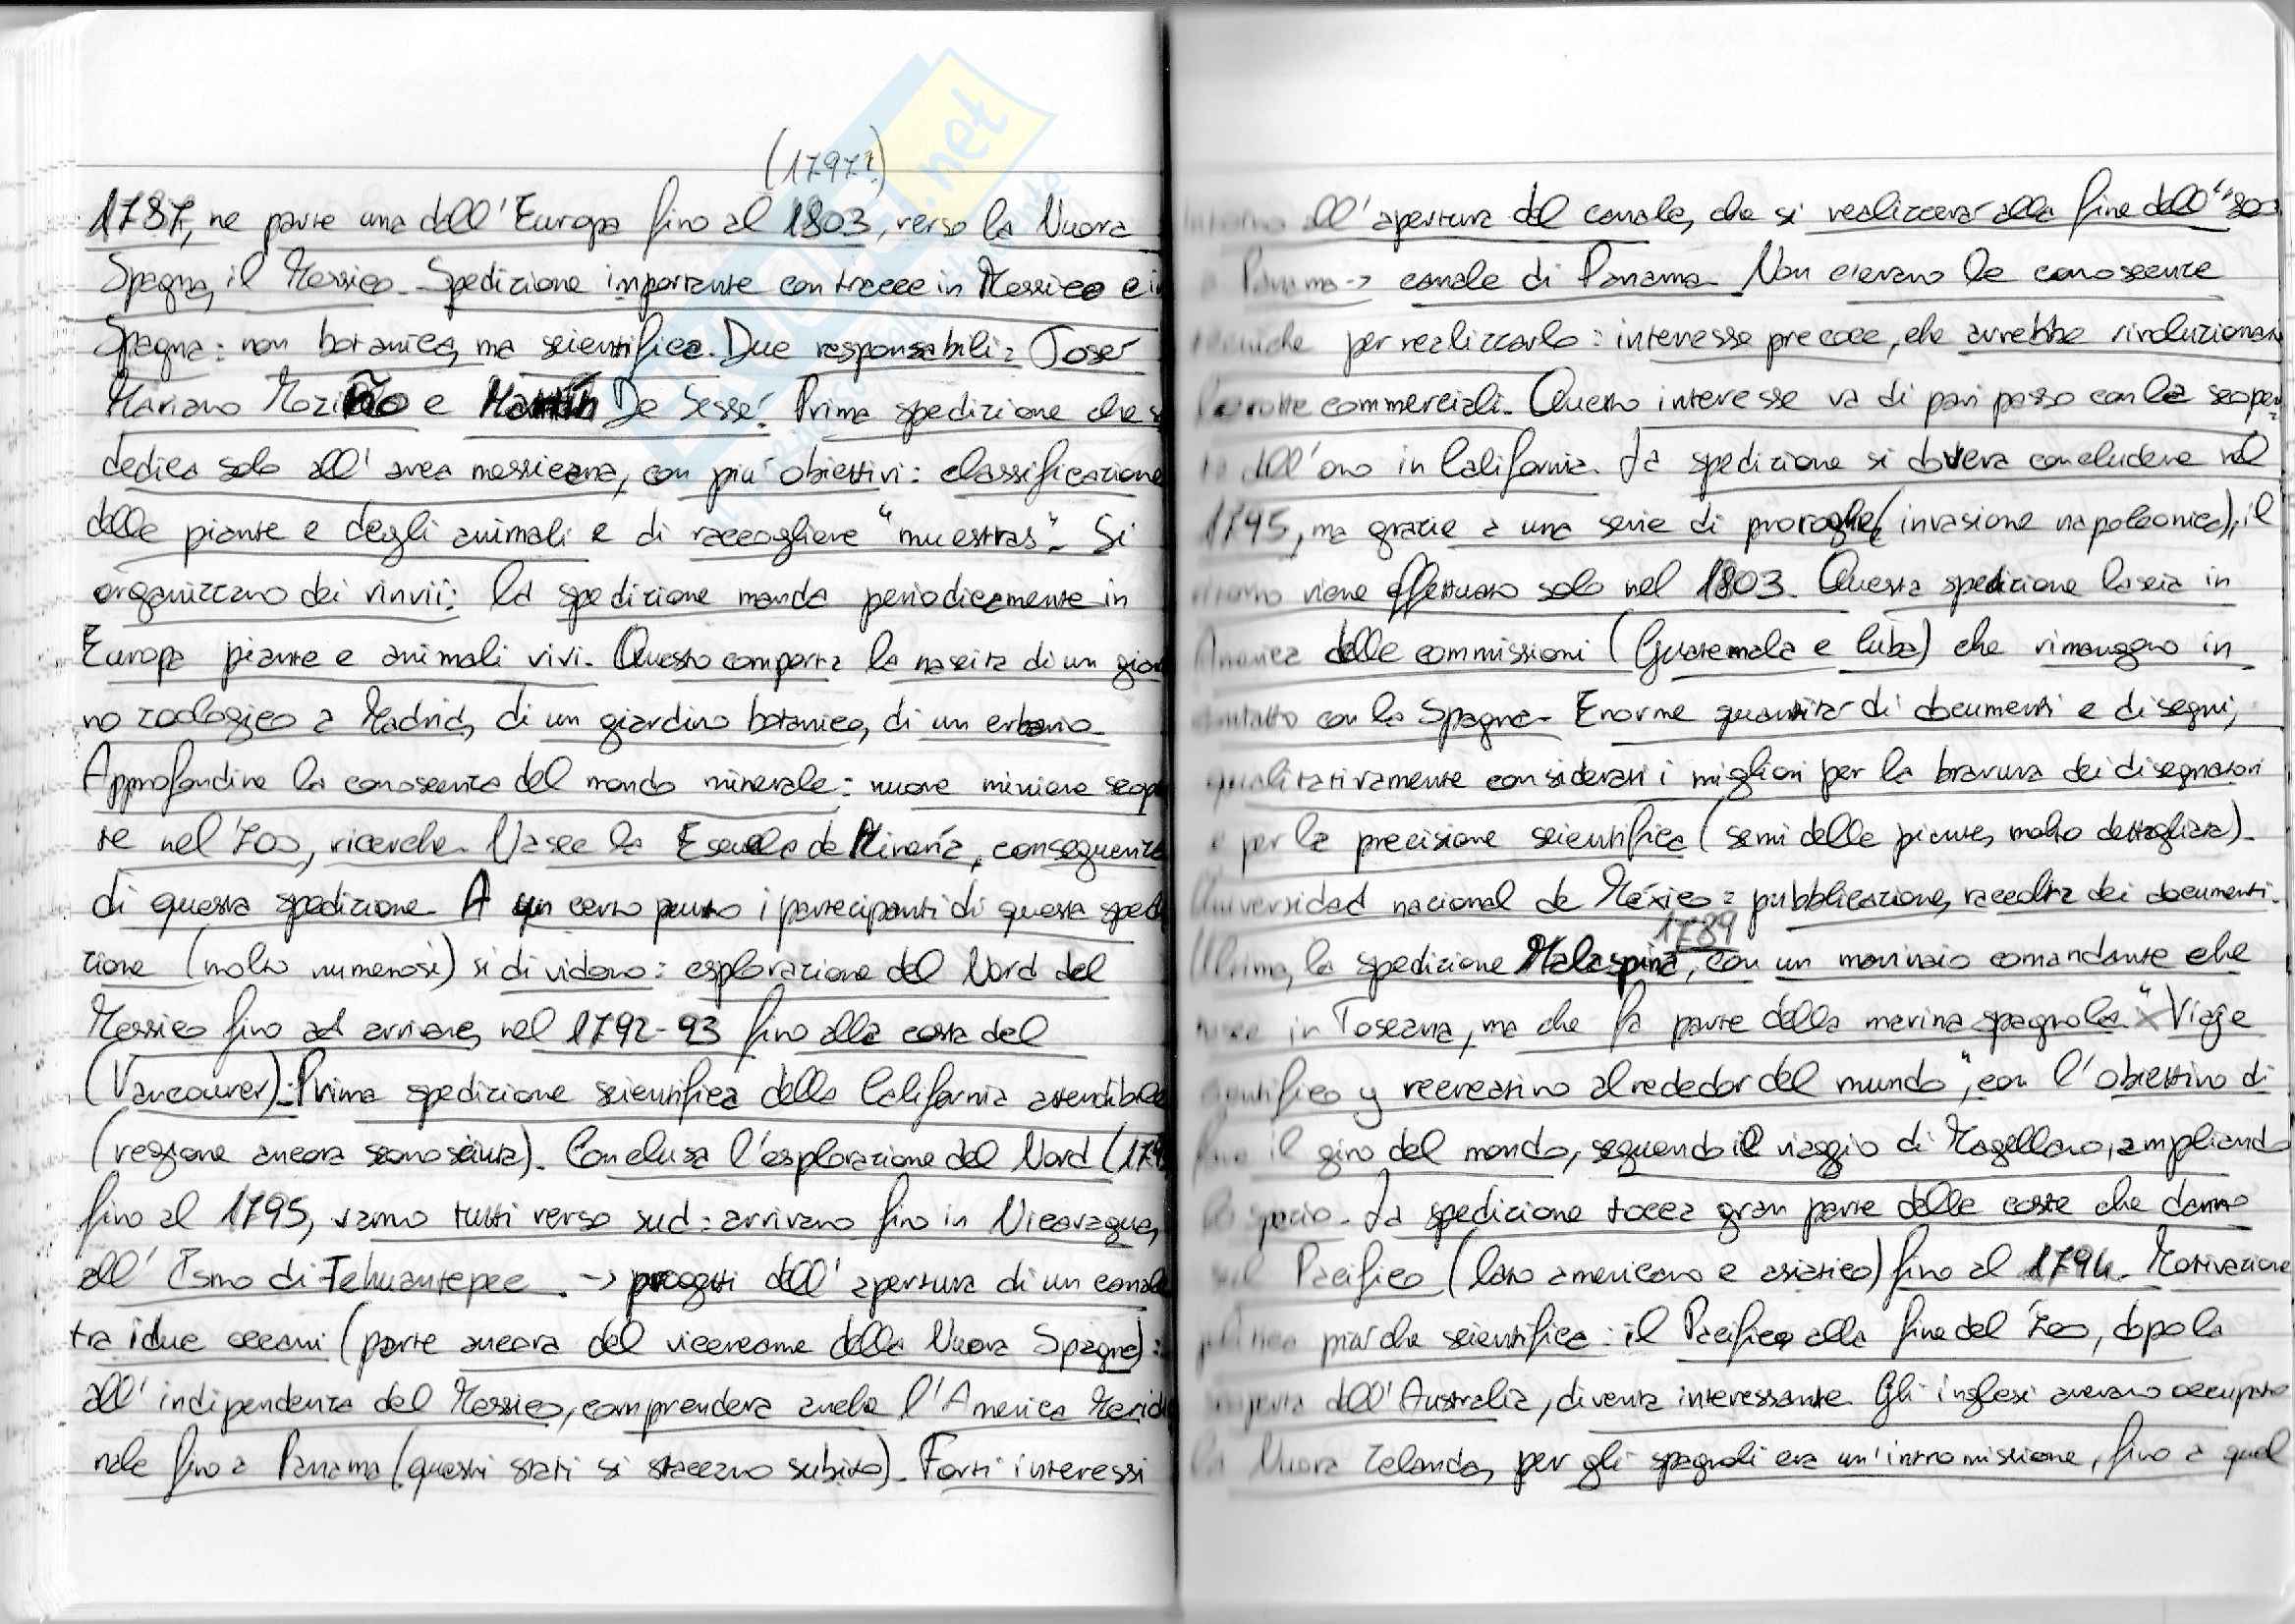 (1797?)
1787, ne parte una dall'Europa fino al 1803, verso la Nuova
Spagna, il Messico. Spedizione importante con tracce in Messico e in
Spagna: non botanica, ma scientifica. Due responsabili: José
Mariano Moziño e Martín De Sessé. Prima spedizione che s
dedica solo all'area messicana, con più obiettivi: classificazione
delle piante e degli animali e di raccogliere "muestras". Si
organizzano dei rinvii: la spedizione manda periodicamente in
Europa piante e animali vivi. Questo comporta la nascita di un giar
no zoologico a Madrid, di un giardino botanico, di un erbario.
Approfondire la conoscenza del mondo minerale: nuove miniere scop
te nel '700, ricerche. Nasce la Escuela de Minería, conseguenza
di questa spedizione. A un certo punto i partecipanti di questa sped
zione (molto numerosi) si dividono: esplorazione del Nord del
Messico fino ad arrivare, nel 1792-93 fino alla costa del
(Vancouver). Prima spedizione scientifica della California attendibile
(regione ancora sconosciuta). Conclusa l'esplorazione del Nord (179
fino al 1795, vanno tutti verso sud: arrivano fino in Nicaragua,
all'Ismo di Tehuantepec. -> progetti dell'apertura di un canale
tra i due oceani (parte ancora del vicereame della Nuova Spagna):
all'indipendenza del Messico, comprenderà anche l'America Merid
nale fino a Panama (questi stati si staccano subito). Forti interessi
intorno all'apertura del canale, che si realizzerà alla fine dell'"800
a Panama -> canale di Panama. Non c'erano le conoscenze
tecniche per realizzarlo: interesse precoce, che avrebbe rivoluzionato
le rotte commerciali. Questo interesse va di pari passo con la scoper
ta dell'oro in California. La spedizione si doveva concludere nel
1795, ma grazie a una serie di proroghe (invasione napoleonica), il
ritorno viene effettuato solo nel 1803. Questa spedizione lascia in
America delle commissioni (Guatemala e Cuba) che rimangono in
contatto con la Spagna. Enorme quantità di documenti e disegni,
qualitativamente considerati i migliori per la bravura dei disegnatori
e per la precisione scientifica (semi delle piante, molto dettagliata).
Universidad nacional de México: pubblicazione, raccolta dei documenti.
1789
Ultima, la spedizione Malaspina, con un marinaio comandante che
nasce in Toscana, ma che fa parte della marina spagnola. "Viaje
scientifico y recreativo alrededor del mundo", con l'obiettivo di
fare il giro del mondo, seguendo il viaggio di Magellano, ampliando
lo spazio. La spedizione tocca gran parte delle coste che danno
sul Pacifico (lato americano e asiatico) fino al 1794. Motivazione
politica più che scientifica: il Pacifico alla fine del '700, dopo la
scoperta dell'Australia, diventa interessante. Gli inglesi avevano occupato
la Nuova Zelanda, per gli spagnoli era un'intromissione, fino a quel